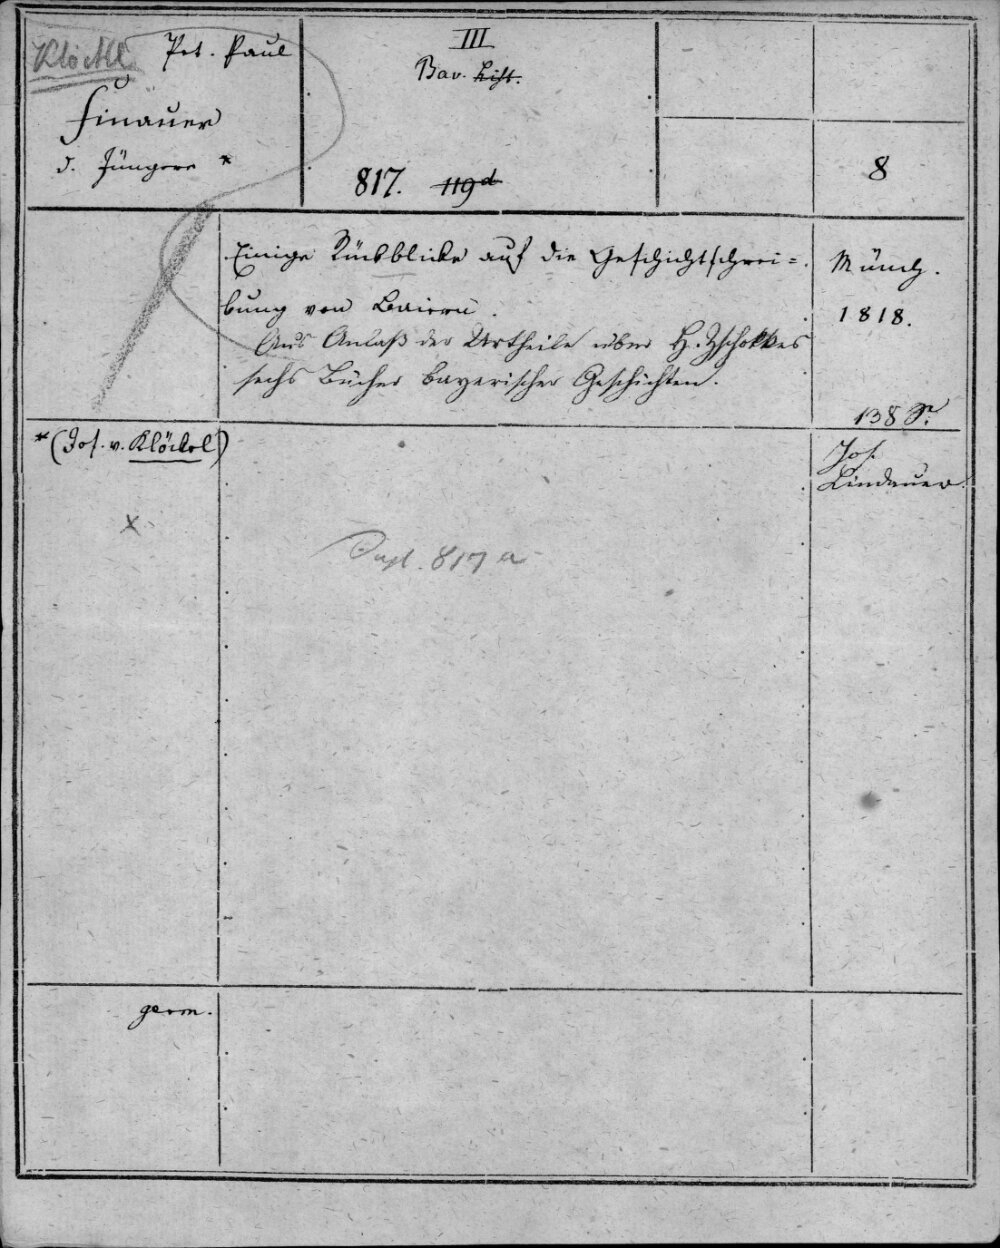 Klöckl Pet. Paul
Finauer
d. Jüngere *
III
Bav. Hist.
817. 119d
8
Einige Rückblicke auf die Geschichtschrei=
bung von Baiern.
Aus Anlaß der Urtheile über H. Zschokkes
sechs Bücher bayerischer Geschichten.
Münch.
1818.
138 S.
* (Jos. v. Klöckel)
Jos.
Lindauer.
x
Dupl. 817 a
germ.